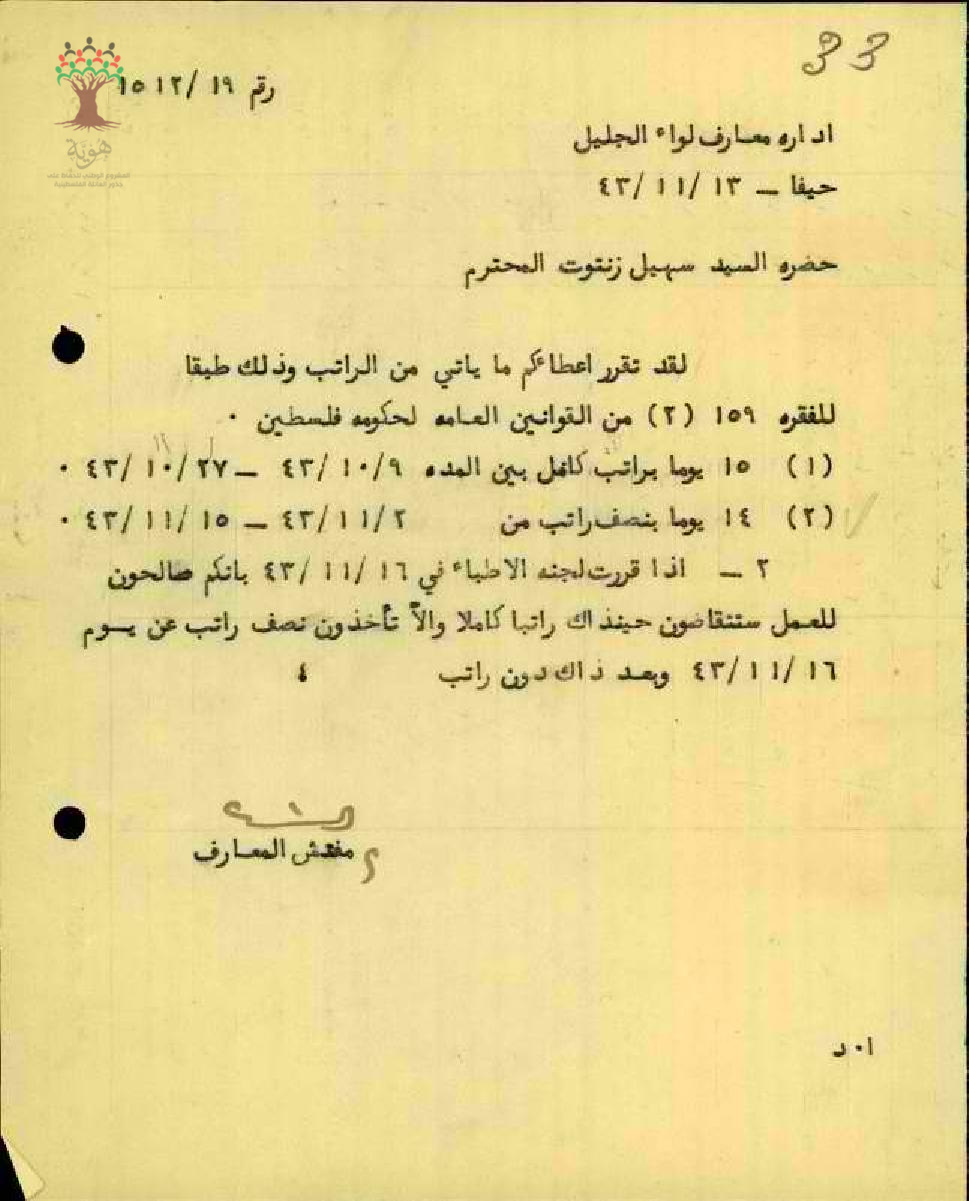 33
رقم ١٩ /١٥١٢
هوية
المشروع الوطني للحفاظ على
جذور العائلة الفلسطينية
اداره معارف لواء الجليل
حيفا ـ ١٣ /١١ /٤٣
حضره السيد سهيل زنتوت المحترم
لقد تقرر اعطاءكم ما ياتي من الراتب وذلك طبقا
للفقره ١٥٩ (٢) من القوانين العامه لحكومه فلسطين ٠
(١) ١٥ يوما براتب كامل بين المده ٤٣/١٠/٩ ـ ٢٧ /١٠ /٤٣ ٠
(٢) ١٤ يوما بنصف راتب من ٤٣/١١/٢ ـ ١٥ /١١ /٤٣ ٠
٢ ـ اذا قررت لجنه الاطباء في ١٦ /١١ /٤٣ بانكم صالحون
للعمل ستتقاضون حينذاك راتبا كاملا والاّ تأخذون نصف راتب عن يـوم
١٦ /١١ /٤٣ وبعد ذاك دون راتب ٤
مفتش المعارف
ا٠ د